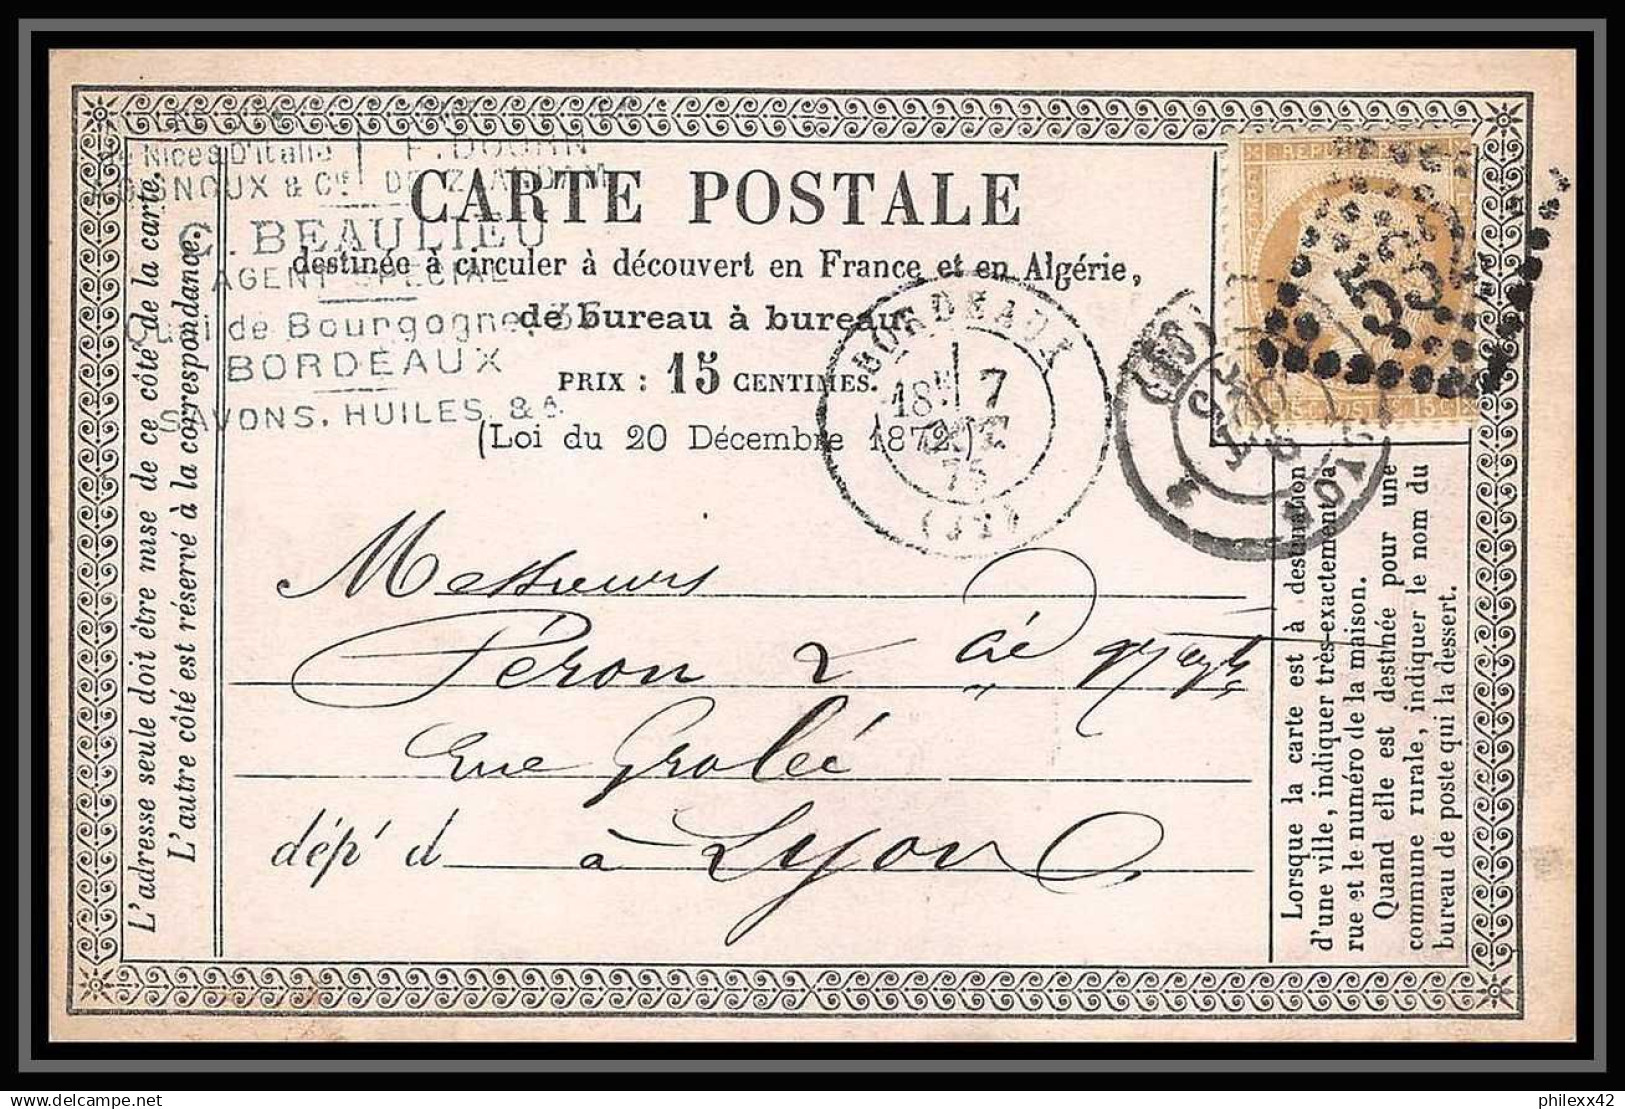 de Nices D'italie
F. DOUHN
& Cie DE ZAANDAM
C. BEAULIEU
AGENT SPÉCIAL
Quai de Bourgogne, 35
BORDEAUX
SAVONS, HUILES, &a
CARTE POSTALE
destinée à circuler à découvert en France et en Algérie,
de bureau à bureau.
PRIX : 15 CENTIMES.
(Loi du 20 Décembre 1872.)
BORDEAUX
18H 7
75
(32)
532
15C. POSTES 15C.
LYON
Messieurs
Péron & Cie
rue Grolée
dépt d à Lyon
L'adresse seule doit être mise de ce côté de la carte.
L'autre côté est réservé à la correspondance.
Lorsque la carte est à destination
d'une ville, indiquer très-exactement la
rue et le numéro de la maison.
Quand elle est destinée pour une
commune rurale, indiquer le nom du
bureau de poste qui la dessert.
philexx42